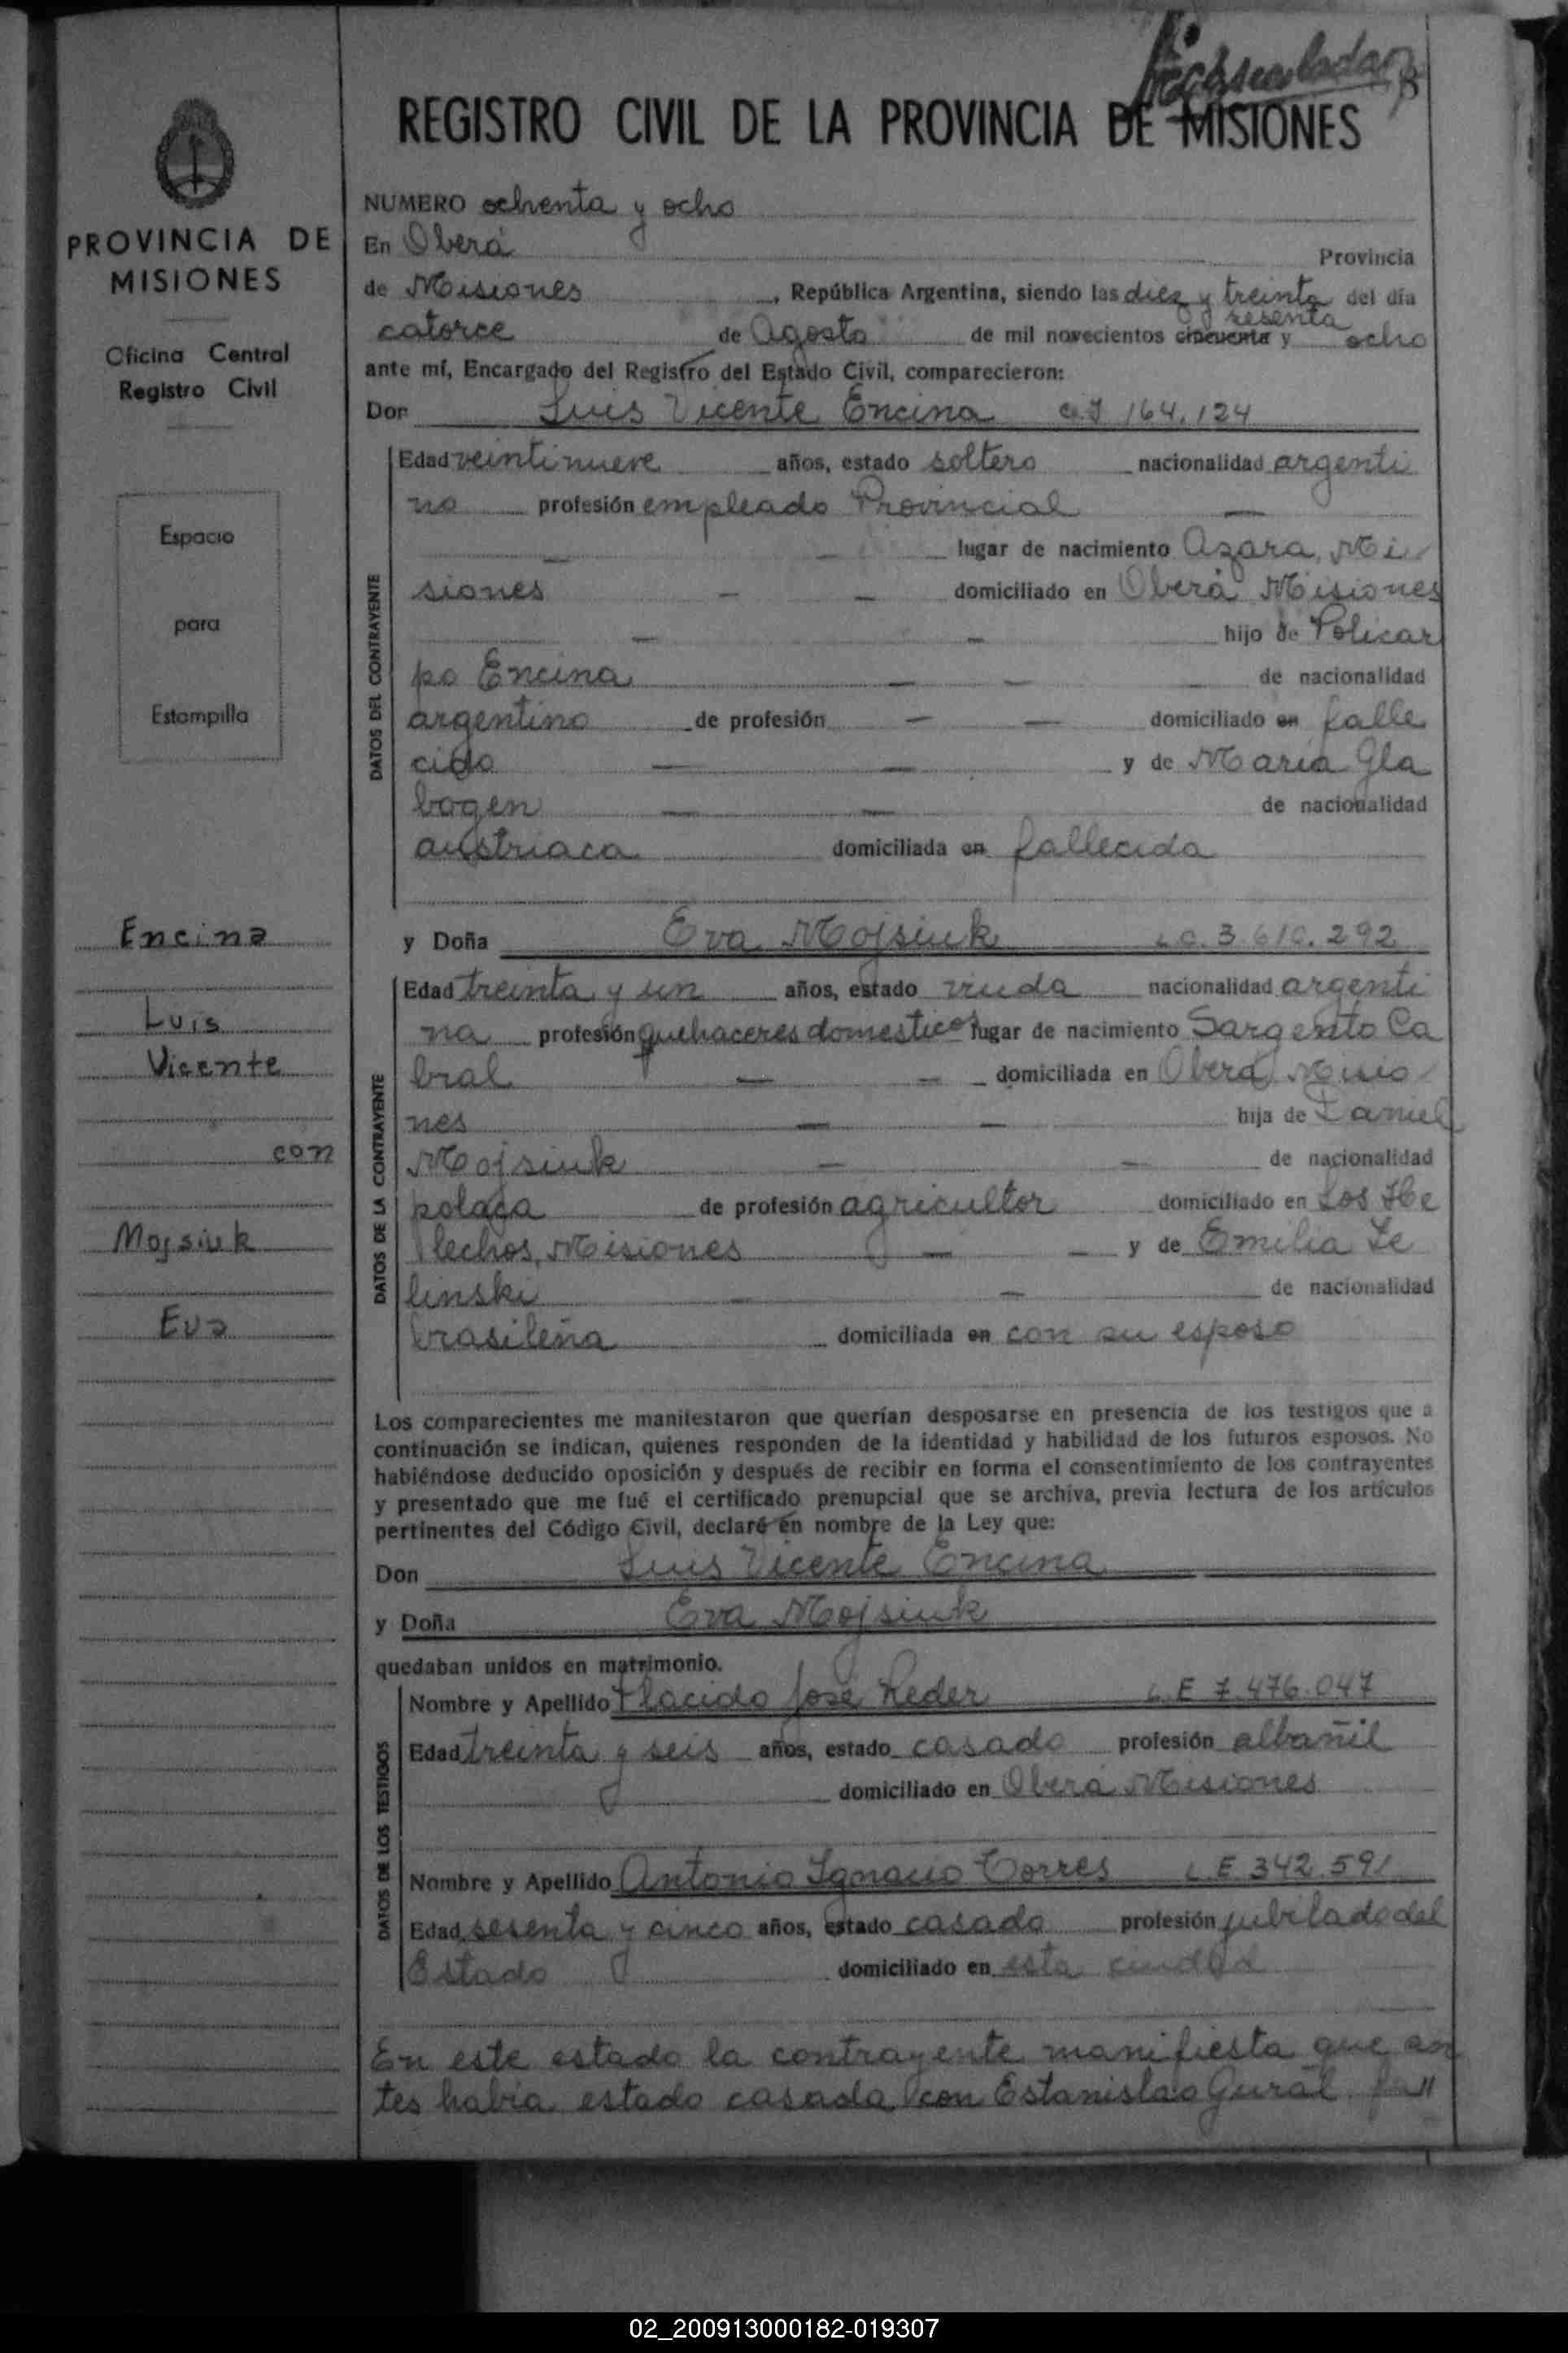 REGISTRO CIVIL DE LA PROVINCIA DE MISIONES
PROVINCIA DE
MISIONES
Oficina Central
Registro Civil
Espacio
para
Estampilla
Encina
Luis
Vicente
con
Mojsiuk
Eva
NUMERO ochenta y ocho
En Oberá Provincia
de Misiones, República Argentina, siendo las diez y treinta del día
sesenta
catorce de Agosto de mil novecientos cincuenta y ocho
ante mí, Encargado del Registro del Estado Civil, comparecieron:
Don Luis Vicente Encina C.I 164.124
DATOS DEL CONTRAYENTE
Edad veintinueve años, estado soltero nacionalidad argenti
no profesión empleado Provincial —
— — lugar de nacimiento Azara, Mi
siones — — domiciliado en Oberá Misiones
— — hijo de Policar
po Encina — — de nacionalidad
argentino de profesión — — domiciliado en falle
cido — — y de María Gla
bogen — — de nacionalidad
austriaca domiciliada en fallecida
y Doña Eva Mojsiuk L.C. 3.610.292
DATOS DE LA CONTRAYENTE
Edad treinta y un años, estado viuda nacionalidad argenti
na profesión quehaceres domesticos lugar de nacimiento Sargento Ca
bral — — domiciliada en Oberá Misio
nes — — hija de Daniel
Mojsiuk — — de nacionalidad
polaca de profesión agricultor domiciliado en Los He
lechos, Misiones — — y de Emilia Ze
linski — — de nacionalidad
brasileña domiciliada en con su esposo
Los comparecientes me manifestaron que querían desposarse en presencia de los testigos que a
continuación se indican, quienes responden de la identidad y habilidad de los futuros esposos. No
habiéndose deducido oposición y después de recibir en forma el consentimiento de los contrayentes
y presentado que me fué el certificado prenupcial que se archiva, previa lectura de los artículos
pertinentes del Código Civil, declaré en nombre de la Ley que:
Don Luis Vicente Encina
y Doña Eva Mojsiuk
quedaban unidos en matrimonio.
DATOS DE LOS TESTIGOS
Nombre y Apellido Placido José Reder L.E 7.476.047
Edad treinta y seis años, estado casado profesión albañil
domiciliado en Oberá Misiones
Nombre y Apellido Antonio Ignacio Torres L.E. 342.591
Edad sesenta y cinco años, estado casado profesión jubilado del
Estado domiciliado en esta ciudad
En este estado la contrayente manifiesta que an
tes habia estado casada con Estanislao Gural fa//
02_200913000182-019307